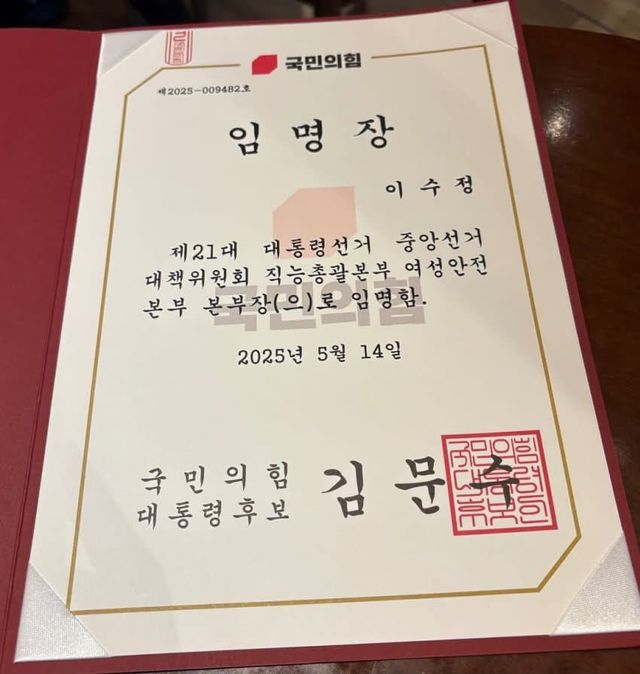 국민의힘
제2025-009482호
임 명 장
이 수 정
제21대 대통령선거 중앙선거
대책위원회 직능총괄본부 여성안전
본부 본부장(으)로 임명함.
국민의힘
2025년 5월 14일
국 민 의 힘
대통령후보
김 문 수